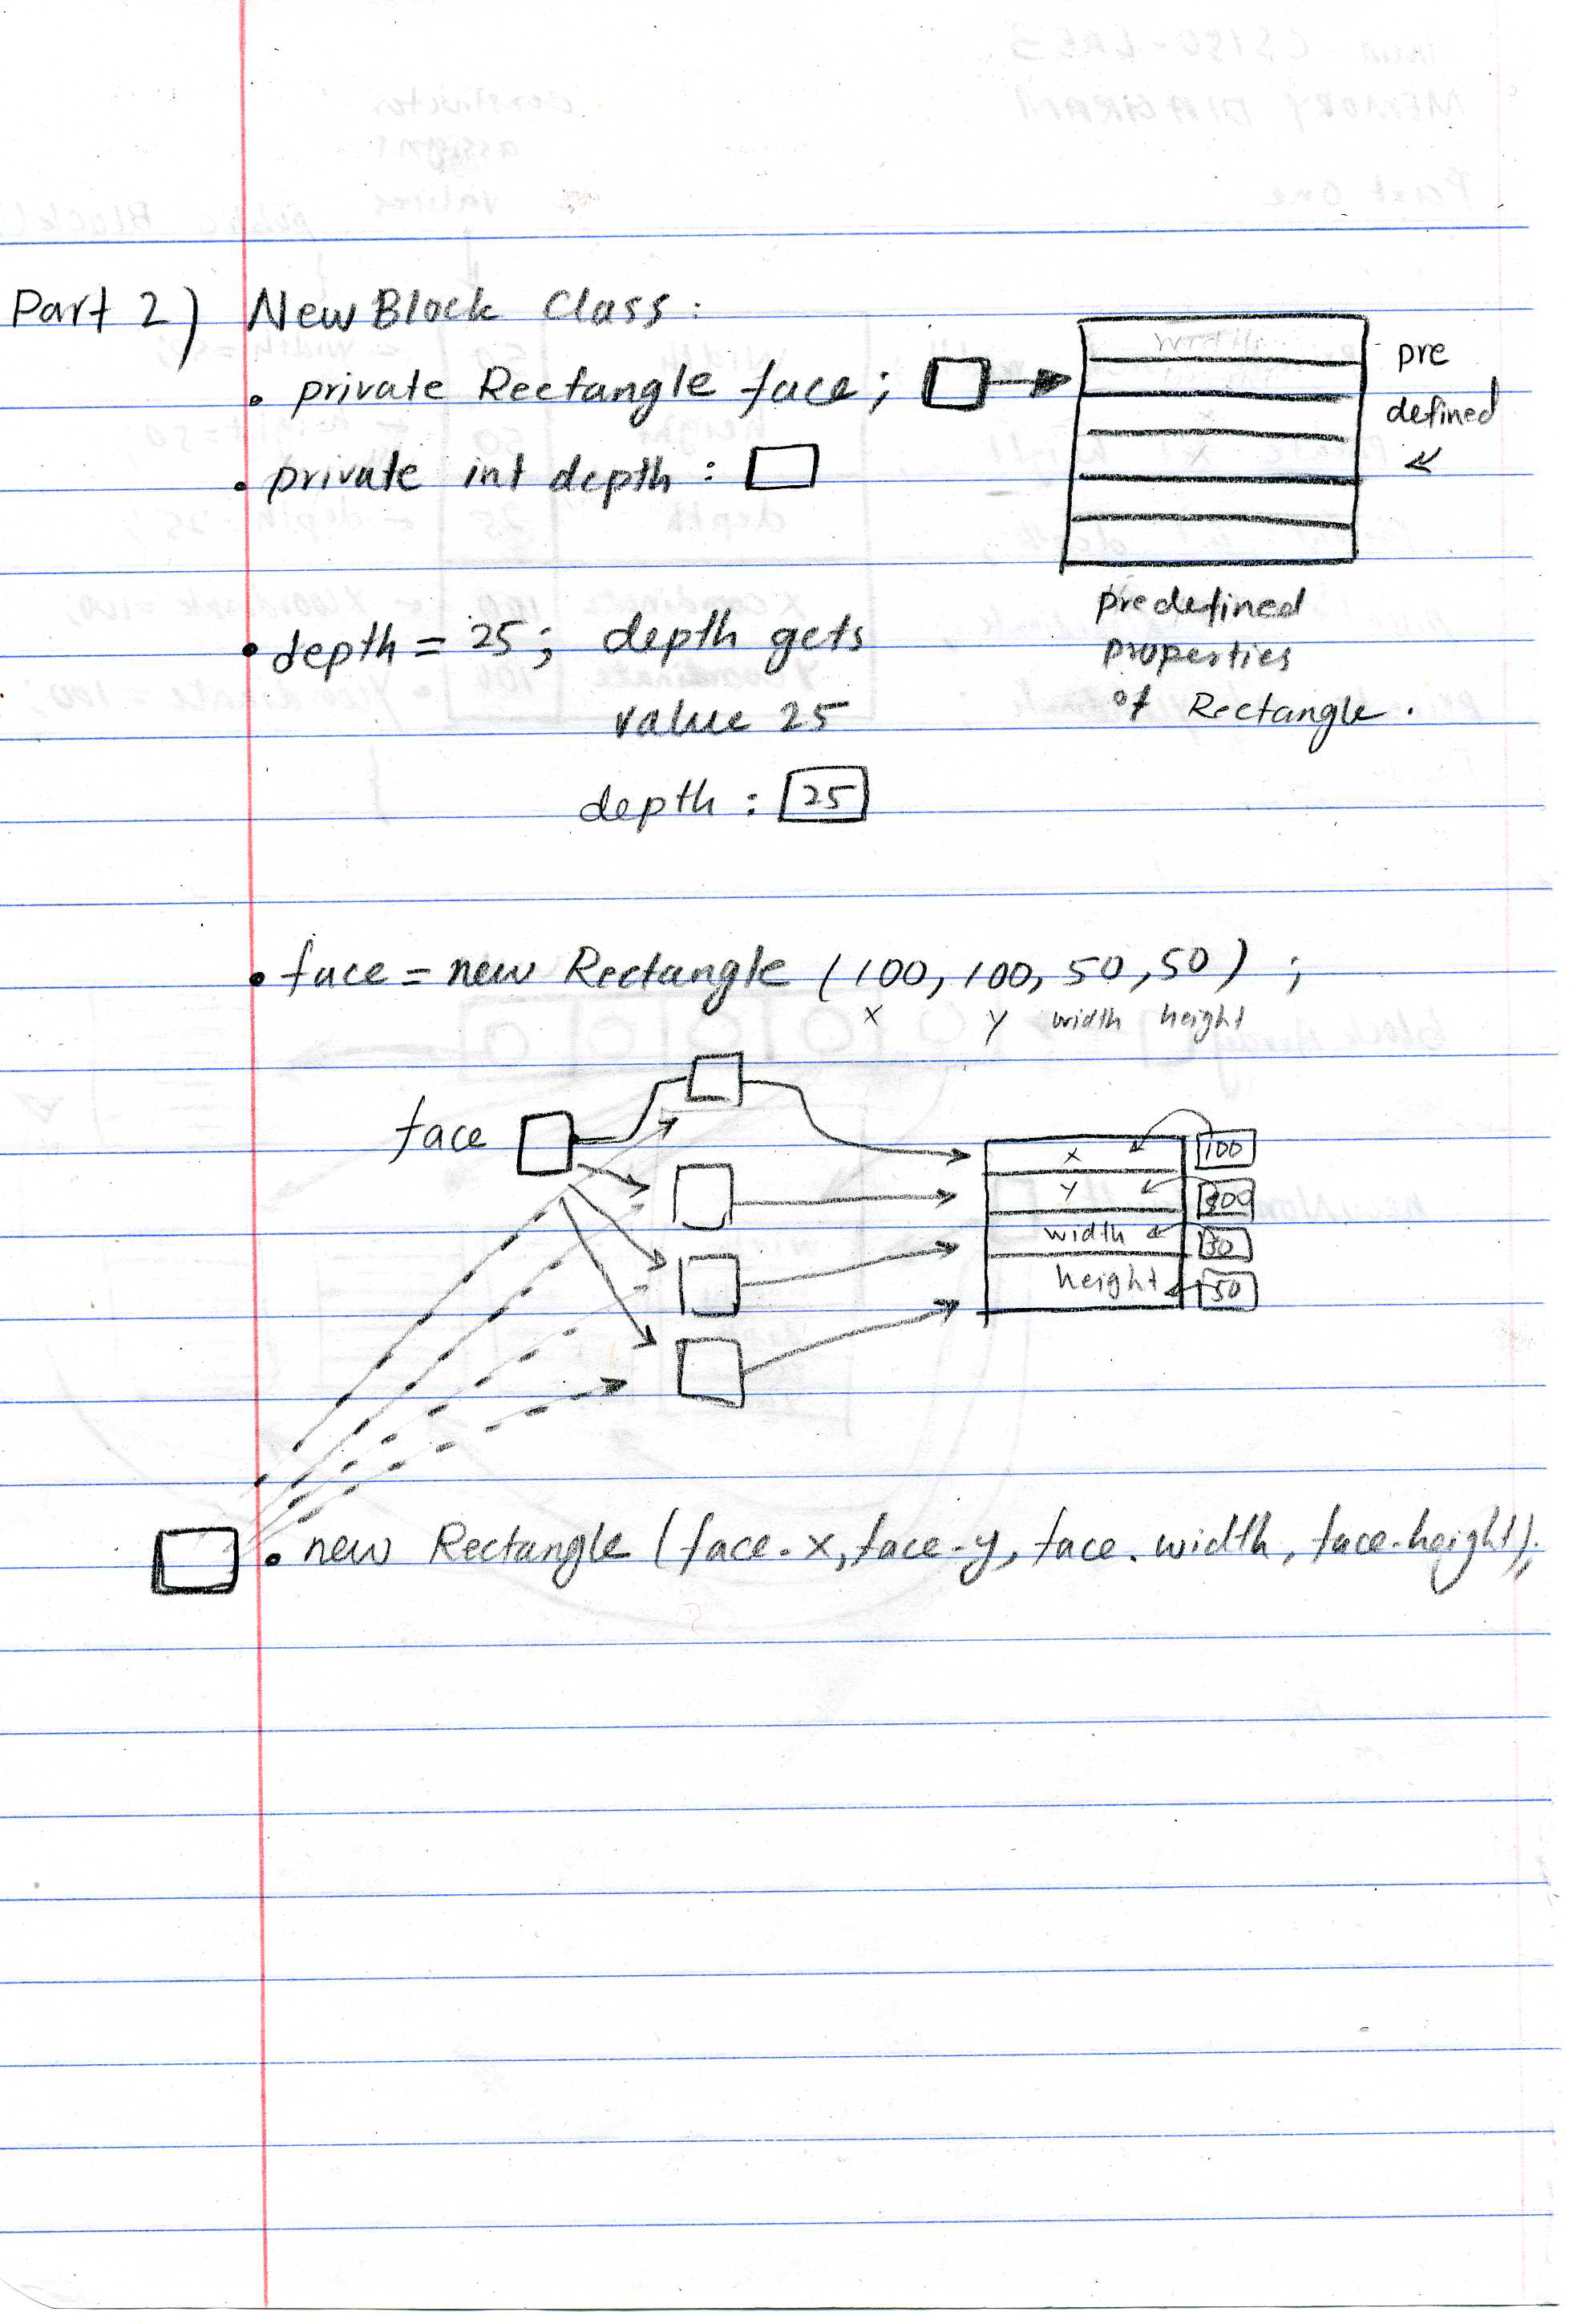 Part 2) New Block Class:
• private Rectangle face;
pre
defined
• private int depth:
predefined
properties
of Rectangle.
• depth = 25; depth gets
value 25
depth: 25
• face = new Rectangle (100, 100, 50, 50);
x y width height
face
x 100
y
width
height 50
• new Rectangle (face.x, face.y, face.width, face.height);